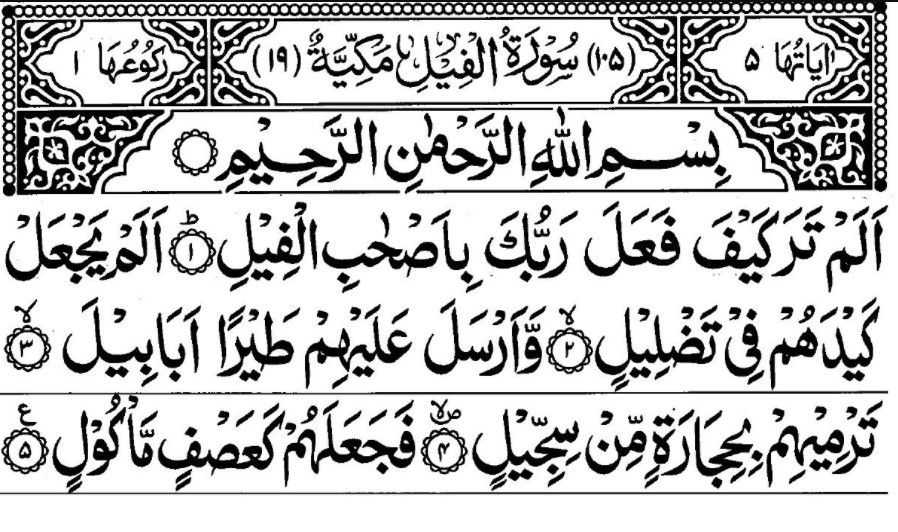 اٰیَاتُهَا ۵ (۱۰۵) سُوْرَةُ الْفِیْلِ مَكِّیَّةٌ (۱۹) رَكُوْعُهَا ۱
بِسْمِ اللّٰهِ الرَّحْمٰنِ الرَّحِیْمِ
اَلَمْ تَرَ كَیْفَ فَعَلَ رَبُّكَ بِاَصْحٰبِ الْفِیْلِ ؕ۱ اَلَمْ یَجْعَلْ
كَیْدَهُمْ فِیْ تَضْلِیْلٍ ۙ۲ وَّاَرْسَلَ عَلَیْهِمْ طَیْرًا اَبَابِیْلَ ۙ۳
تَرْمِیْهِمْ بِحِجَارَةٍ مِّنْ سِجِّیْلٍ ۪ۙ۴ فَجَعَلَهُمْ كَعَصْفٍ مَّاْكُوْلٍ ۵ ع